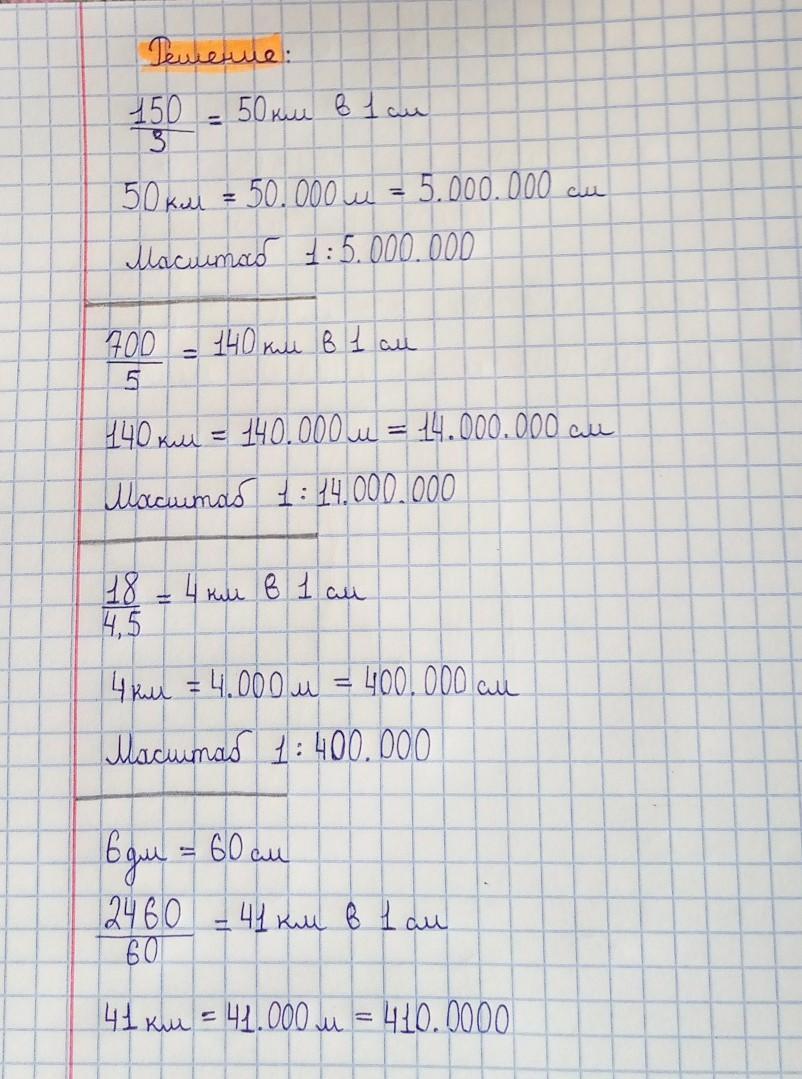 Решение:
150/3 = 50 км в 1 см
50 км = 50.000 м = 5.000.000 см
Масштаб 1 : 5.000.000
700/5 = 140 км в 1 см
140 км = 140.000 м = 14.000.000 см
Масштаб 1 : 14.000.000
18/4,5 = 4 км в 1 см
4 км = 4.000 м = 400.000 см
Масштаб 1 : 400.000
6 дм = 60 см
2460/60 = 41 км в 1 см
41 км = 41.000 м = 410.0000